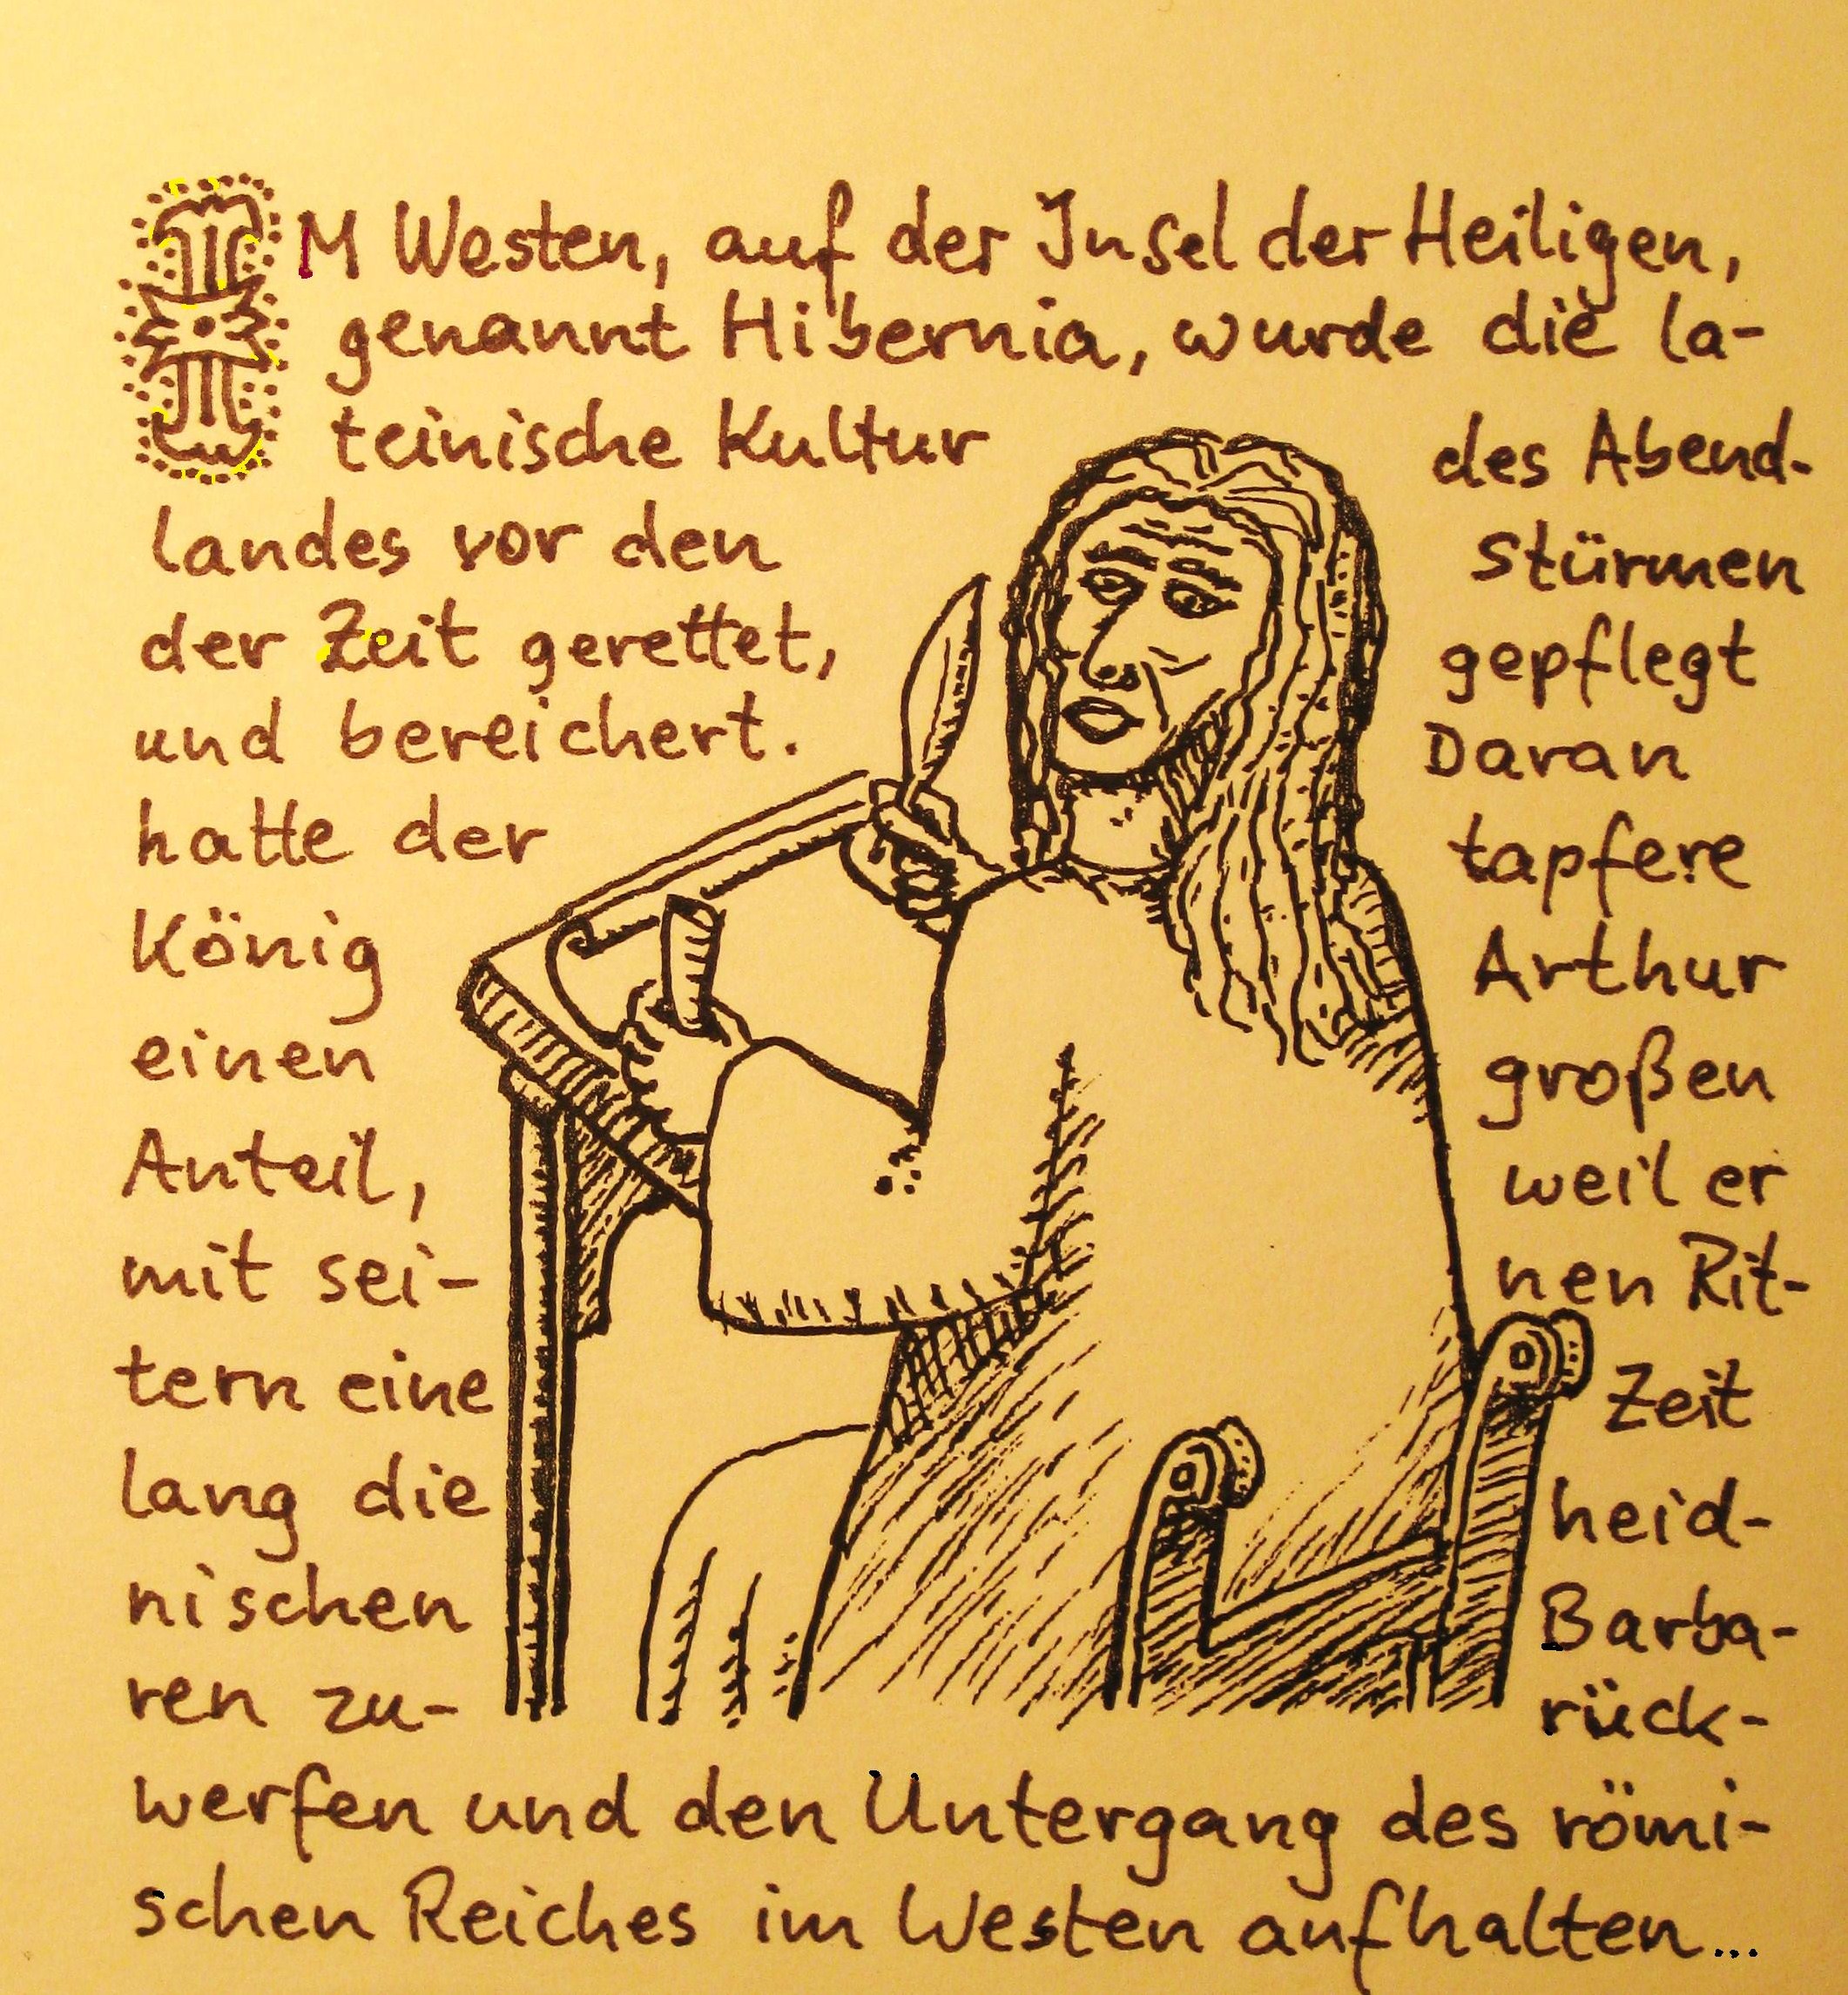 IM Westen, auf der Insel der Heiligen,
genannt Hibernia, wurde die la-
teinische Kultur des Abend-
landes vor den Stürmen
der Zeit gerettet, gepflegt
und bereichert. Daran
hatte der tapfere
König Arthur
einen großen
Anteil, weil er
mit sei- nen Rit-
tern eine Zeit
lang die heid-
nischen Barba-
ren zu- rück-
werfen und den Untergang des römi-
schen Reiches im Westen aufhalten...